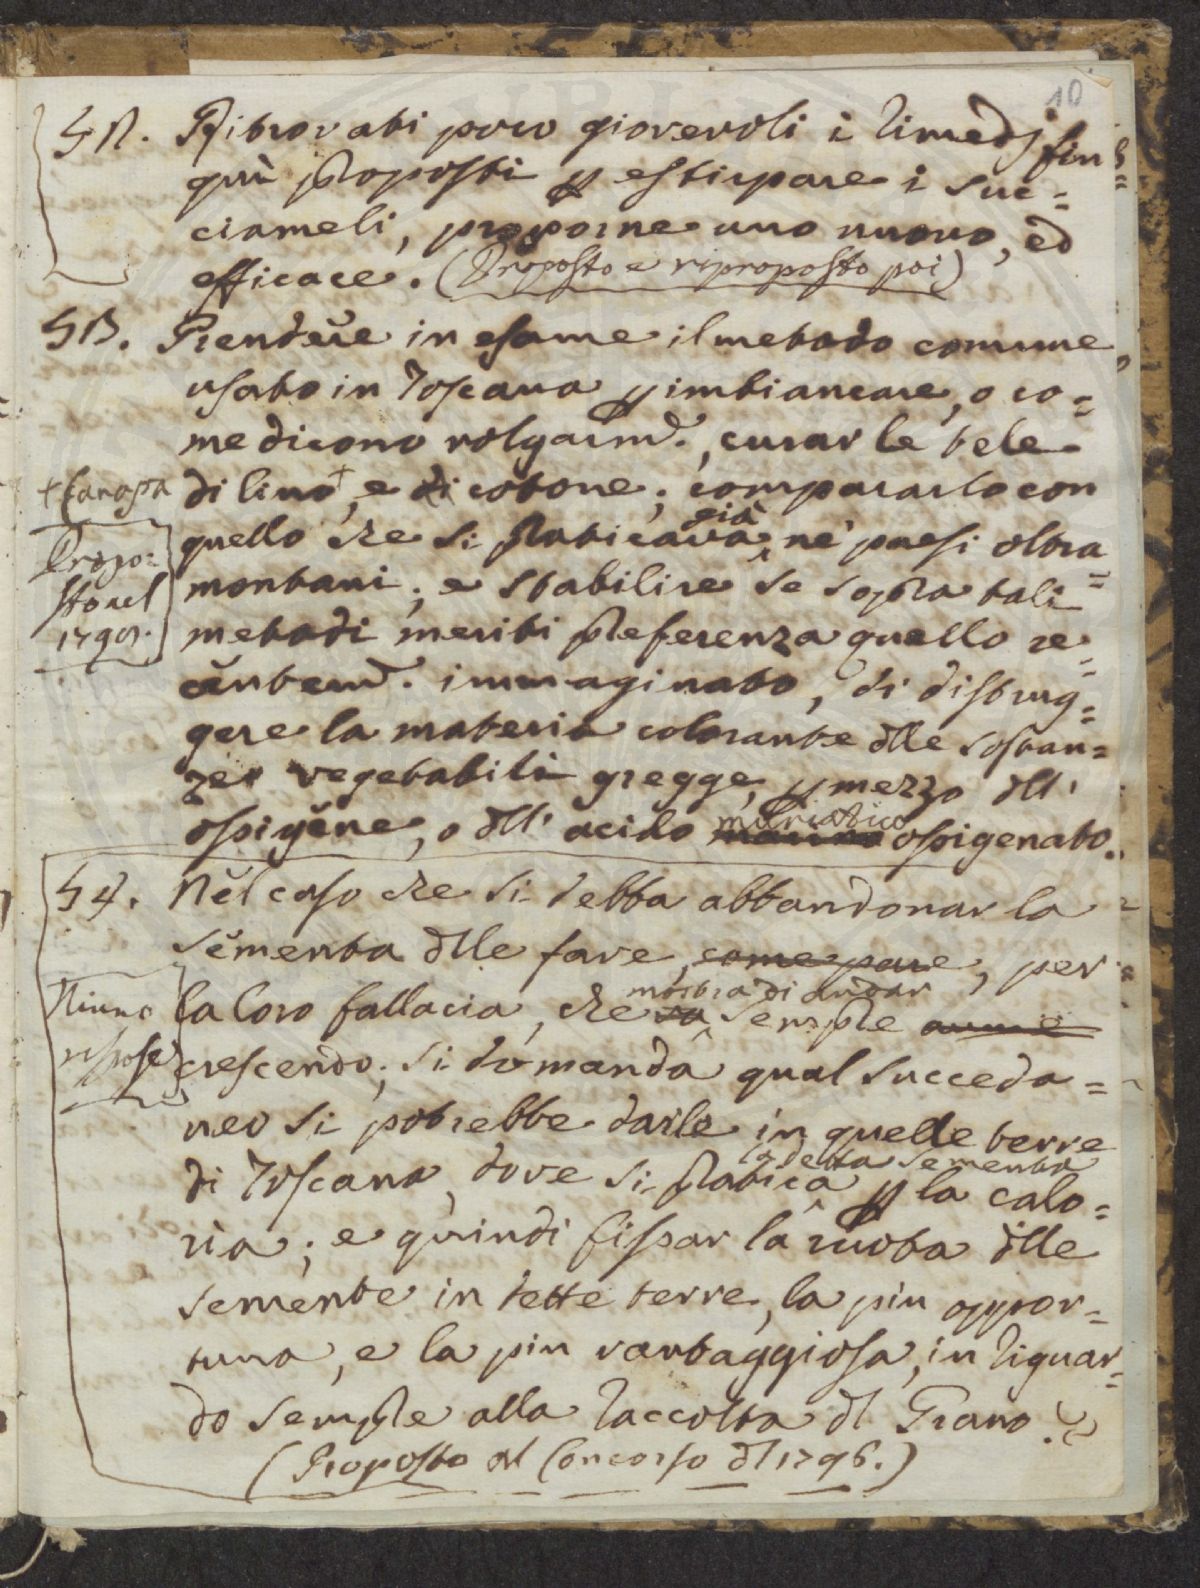 10
§ 12. Ritrovati poco giovevoli i rimedj fin
quì proposti p estirpare i suc=
ciameli, proporne uno nuovo, ed
efficace. (Proposto e riproposto poi)
§ 13. Prendere in esame il metodo comune
usato in Toscana p imbiancare, o co=
me dicono volgarmᵉ., curar le tele
+ Canapa
di lino+, e di cotone; compararlo con
già
quello che si praticava ne' paesi oltra=
Propo:
sto nel
montani; e stabilire se sopra tali
metodi meriti preferenza quello re=
centemᵉ. immaginato, di distrug=
gere la materia colorante dlle sostan=
ze vegetabili gregge, p mezzo dll'
muriatico
ossigene, o dll' acido marino ossigenato.
§ 4. Nel caso che si debba abbandonar la
sementa dlle fave, come pare, per
mostra di andar
Niuno
rispose
la loro fallacia, che va sempre
crescendo; si domanda qual succeda=
neo si potrebbe darle in quelle terre
la detta sementa
di Toscana, dove si pratica p la calo=
ria; e quindi fissar la ruota dlle
semente in dette terre, la piu oppor=
tuna, e la piu vantaggiosa, in riguar=
do sempre alla raccolta dl Grano?
(Proposto al Concorso dl 1796.)